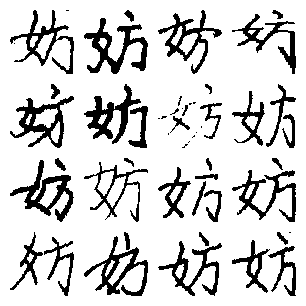 妨妨妨妨
妨妨妨妨
妨妨妨妨
妨妨妨妨